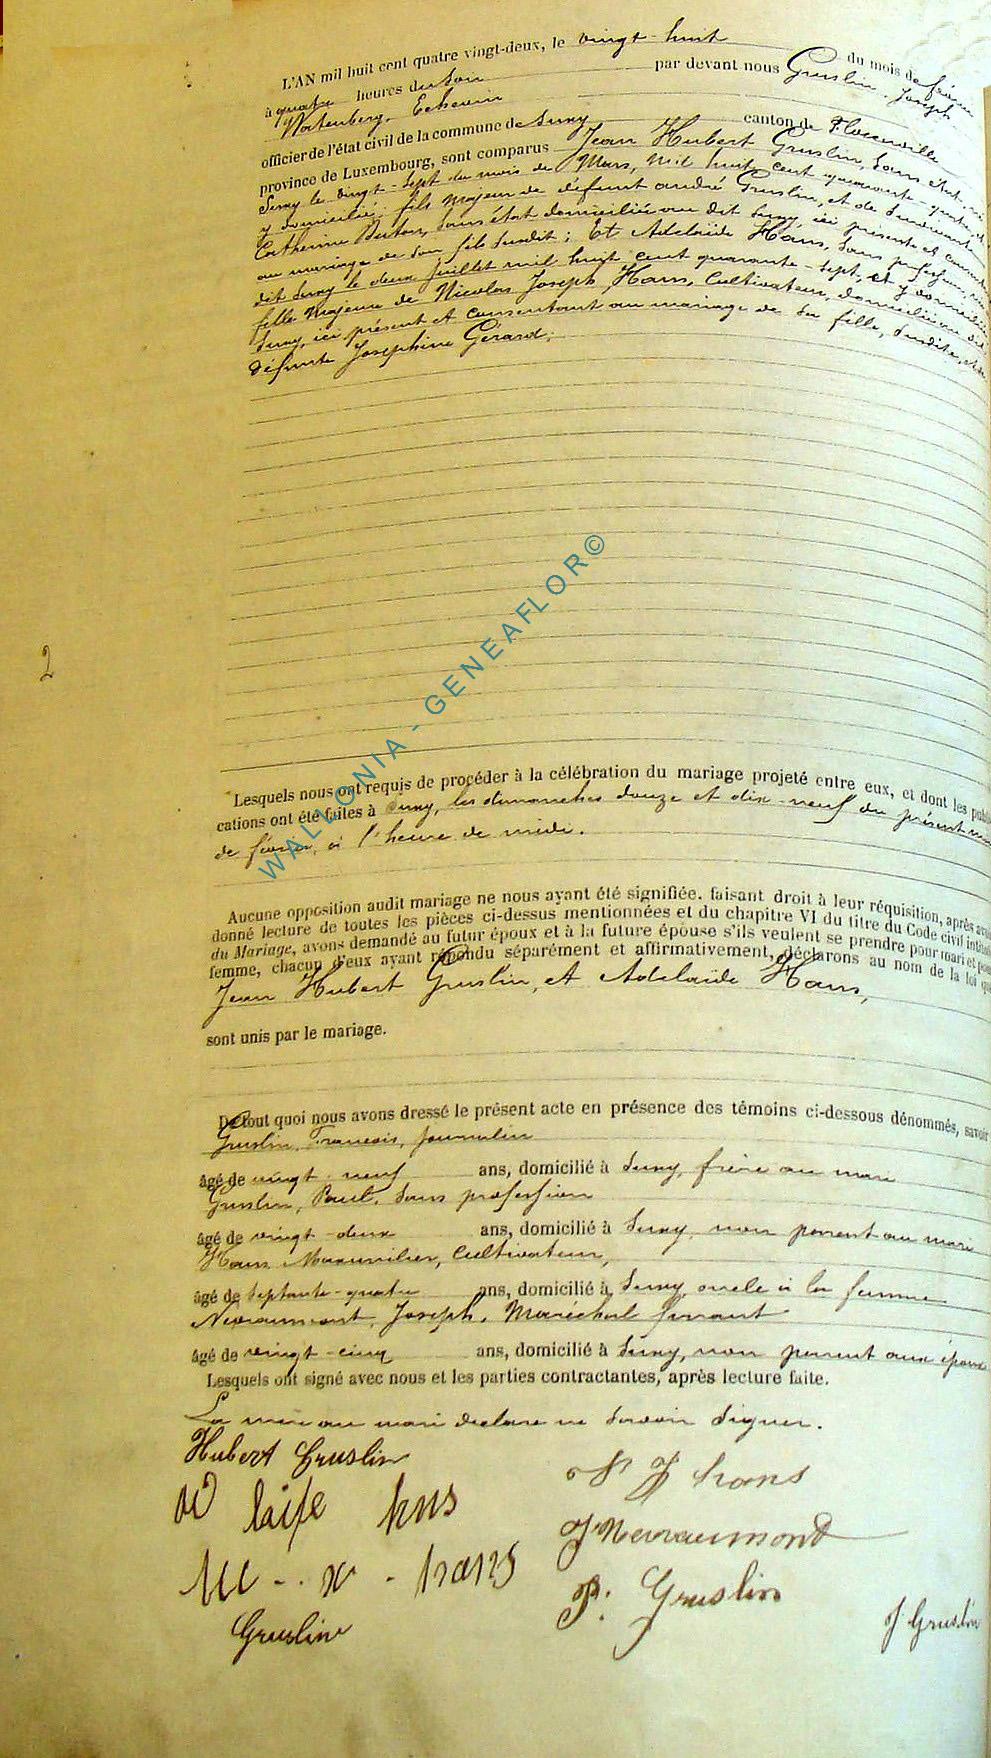 L'AN mil huit cent quatre vingt-deux, le vingt-huit du mois de février
à quatre heures du soir par devant nous Gruslin, Joseph
Wortenberg, Echevin
officier de l'état civil de la commune de Suxy canton de Florenville
province de Luxembourg, sont comparus Jean Hubert Gruslin, sans état, né
Suxy le vingt-sept du mois de Mars, mil huit cent quarante-quatre
y domicilié, fils majeur de défunt andré Gruslin, et de
Catherine sans état domiciliée au dit Suxy, ici présente et
au mariage de son fils susdit; Et Adelaïde Hans, sans profession,
dit Suxy le deux Juillet mil huit cent quarante-sept, et y domiciliée
fille majeure de Nicolas Joseph Hans, Cultivateur, domicilié au dit
Suxy, ici présent et consentant au mariage de sa fille, susdite,
défunte Josephine Gérard;
Lesquels nous ont requis de procéder à la célébration du mariage projeté entre eux, et dont les publi
cations ont été faites à Suxy, les dimanches douze et dix-neuf du présent mois
de février, à l'heure de midi.
Aucune opposition audit mariage ne nous ayant été signifiée. faisant droit à leur réquisition, après avoir
donné lecture de toutes les pièces ci-dessus mentionnées et du chapitre VI du titre du Code civil intitulé
du Mariage, avons demandé au futur époux et à la future épouse s'ils veulent se prendre pour mari et pour
femme, chacun d'eux ayant répondu séparément et affirmativement, déclarons au nom de la loi que
Jean Hubert Gruslin, et Adelaïde Hans,
sont unis par le mariage.
De tout quoi nous avons dressé le présent acte en présence des témoins ci-dessous dénommés, savoir
Gruslin, François, journalier
âgé de vingt neuf ans, domicilié à Suxy, frère au mari
Gruslin, Paul, sans profession
âgé de vingt-deux ans, domicilié à Suxy, non parent au mari
Hans Cultivateur,
âgé de septante-quatre ans, domicilié à Suxy, oncle à la femme
Nevraumont, Joseph, Maréchal ferrant
âgé de vingt-cinq ans, domicilié à Suxy, non parent aux époux
Lesquels ont signé avec nous et les parties contractantes, après lecture faite.
La mère au mari déclare ne savoir signer.
Hubert Gruslin
N J hans
hns
J Nevraumont
hans
P. Gruslin
Gruslin
J Gruslin
2
WALLONIA - GENEAFLOR©